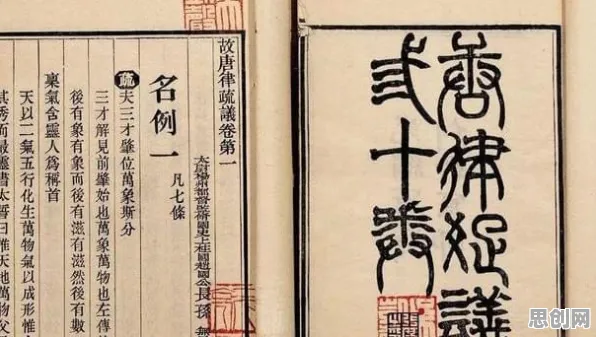 唐律疏議
弎十卷
故唐律疏議卷第一
太尉揚州都督監修國史上柱國趙國公長孫無
名例一 凡七條
疏夫三才肇位萬象斯分
三才解見前肇始也萬象萬物也左傳
後有象有象而後有滋有滋然後有數
稟氣含靈人爲稱首
天以二氣五行化生萬物氣以成形惟
其秀而最靈書太誓曰惟天地萬物父
思创网